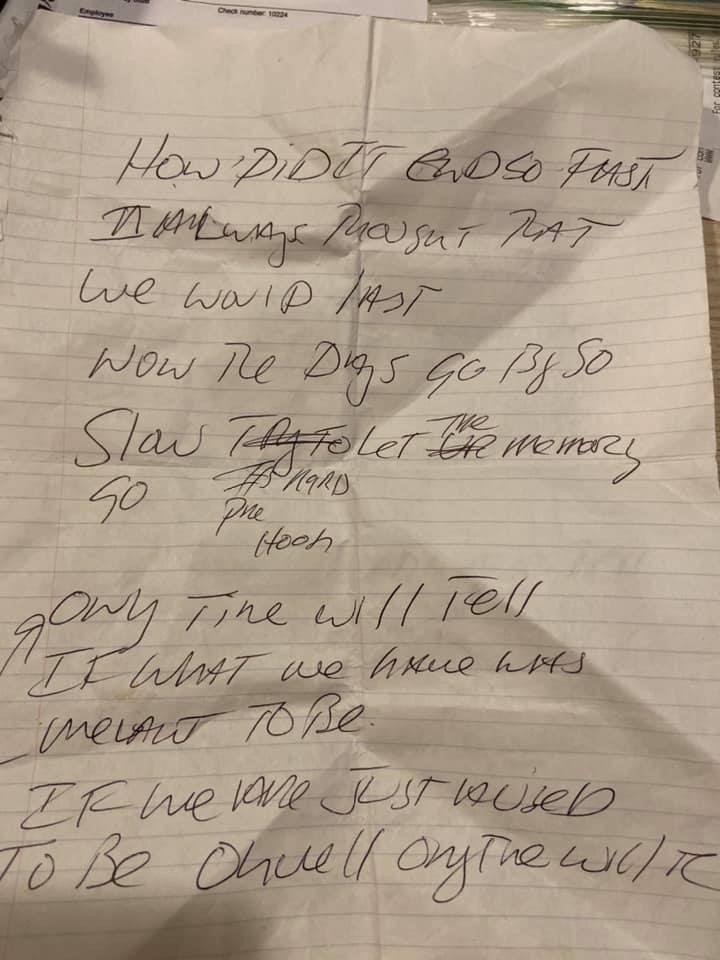 Employee
Check number: 10224
927
HOW DID IT END SO FAST
I ALWAYS THOUGHT THAT
WE WOULD LAST
NOW THE DAYS GO BY SO
SLOW TRY TO LET THE memory
GO ITS HARD
Hook
ONLY TIME WILL TELL
IF WHAT WE HAVE WAS
MEANT TO BE.
IF WE ARE JUST
TO BE OH WELL ONLY TIME WILL TE